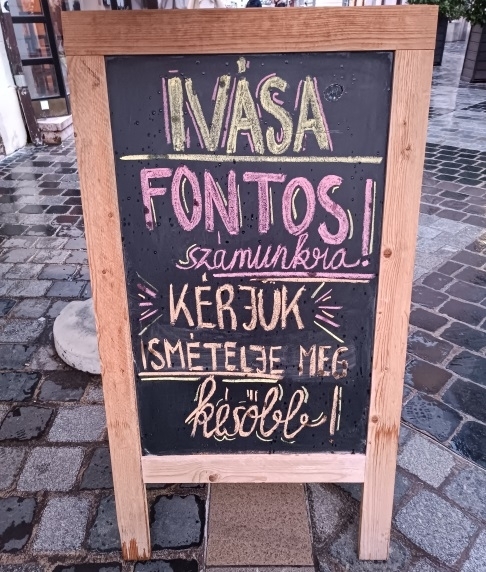 IVÁSA
FONTOS
számunkra!
KÉRJÜK
ISMÉTELJE MEG
később!